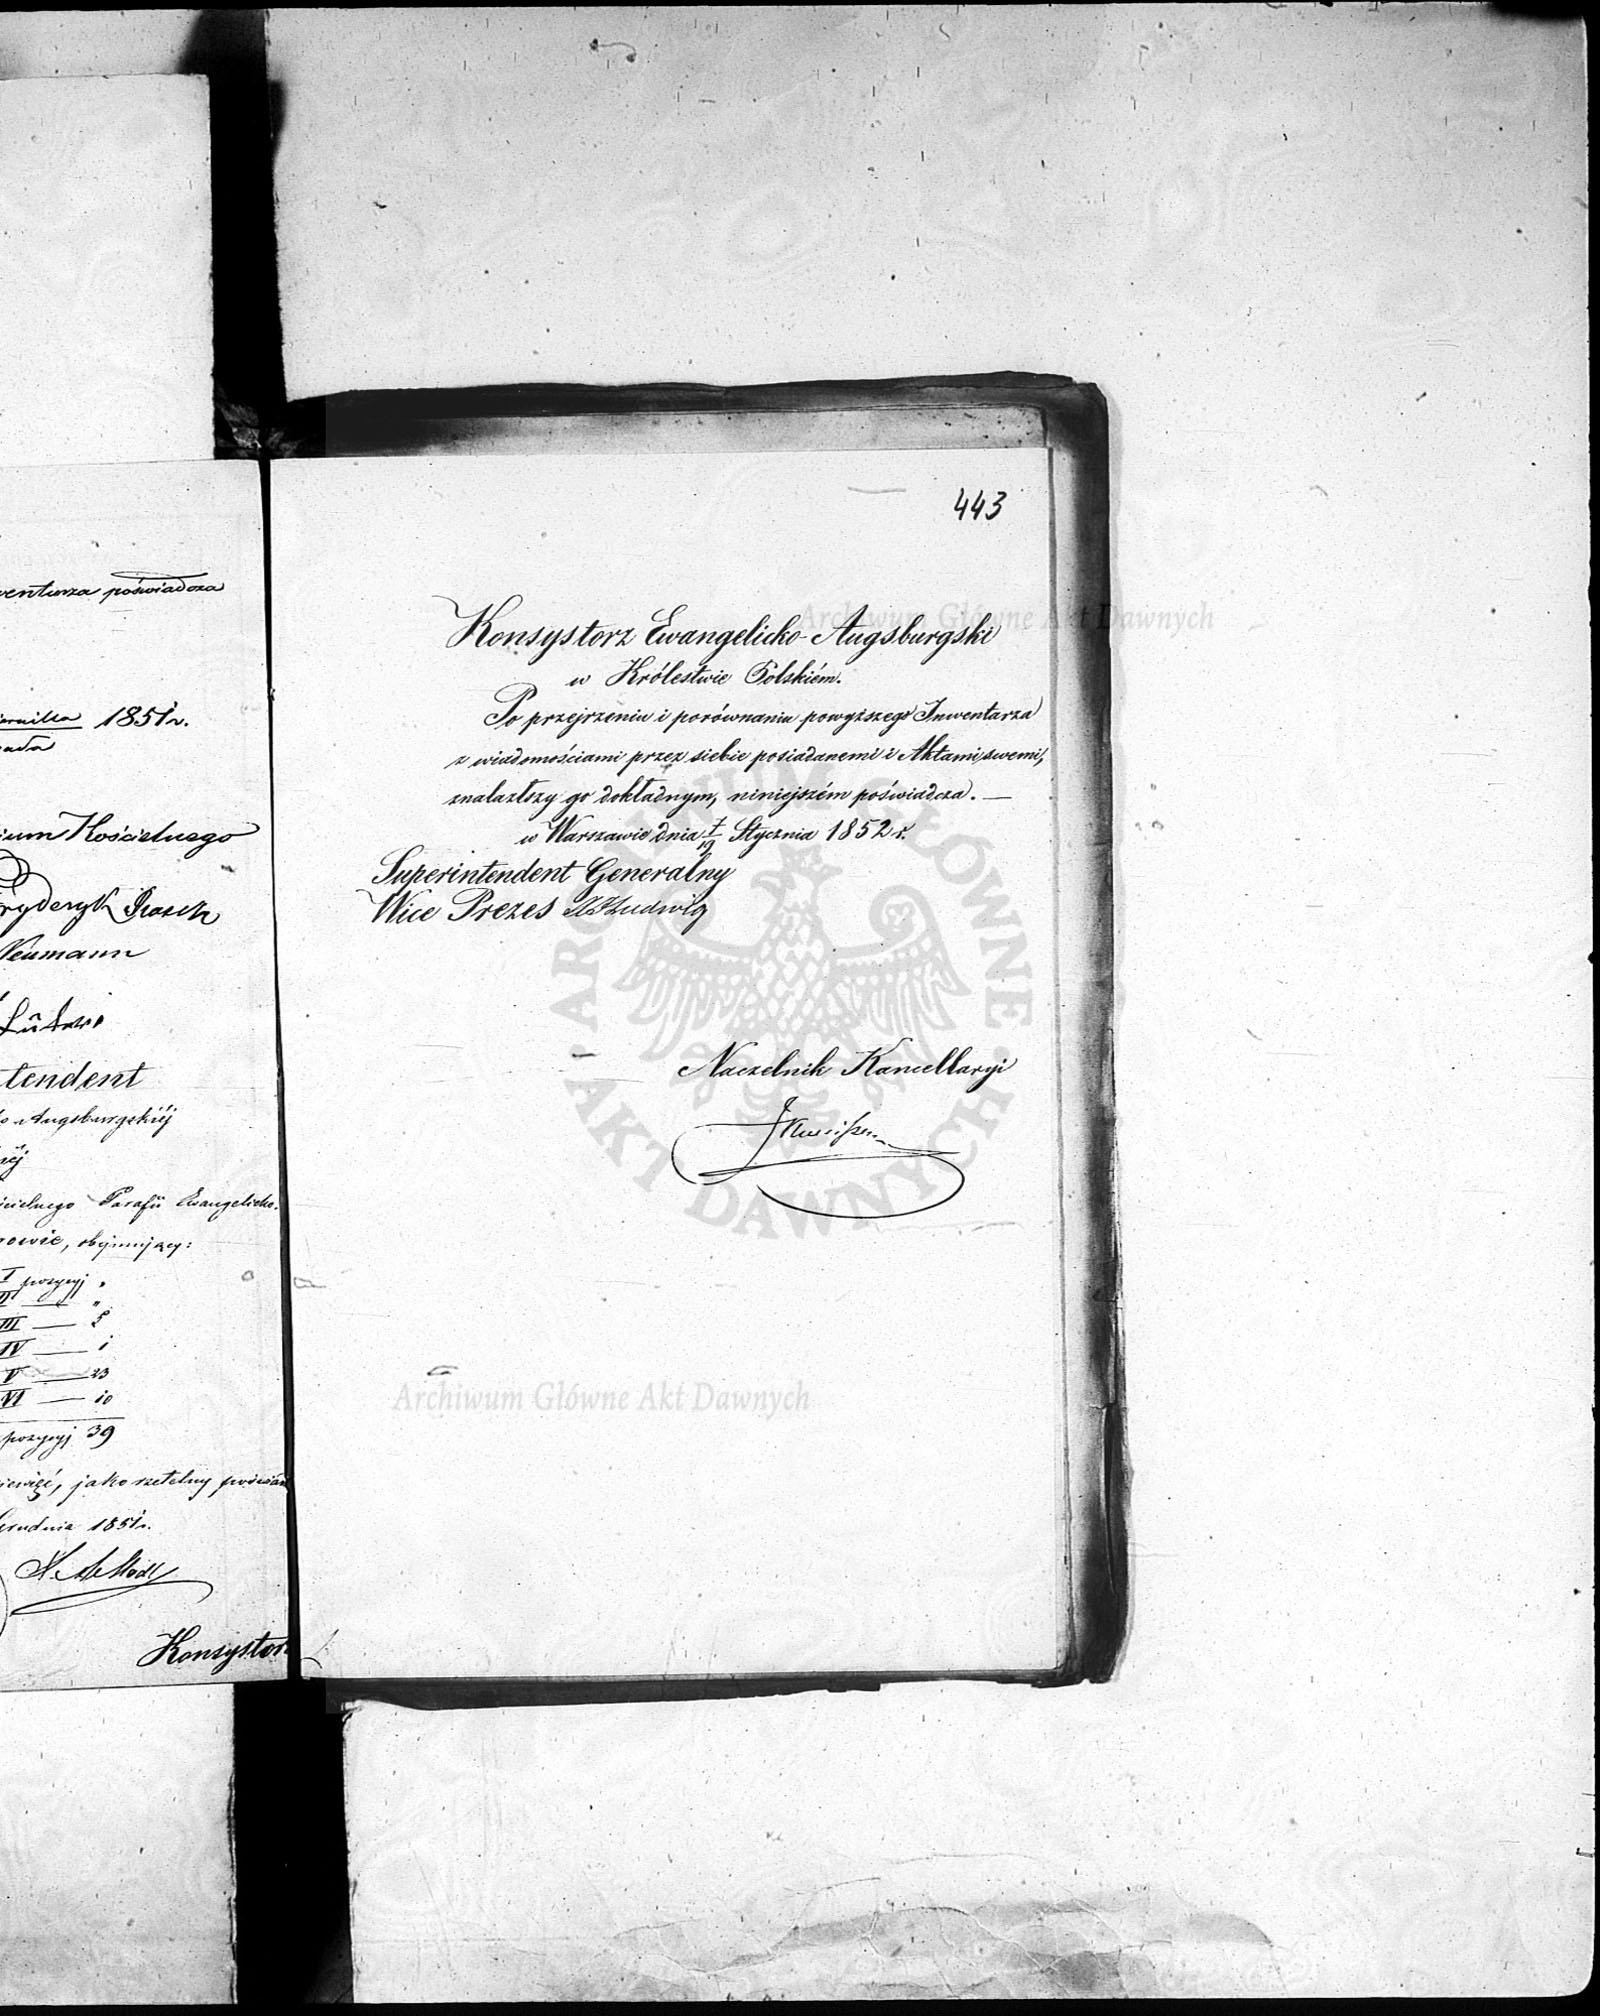 wentarza poświadcza
1851 r.
Kościelnego
Fryderyk
Neumann
tendent
o-Augsburgskiéj
Parafii Ewangelicko-
obejmujący:
I pozycyj "
II — "
III — 5
IV — 1
V — 23
VI — 10
pozycyj 39
jako rzetelny
Grudnia 1851 r.
Konsystorz
443
Konsystorz Ewangelicko-Augsburgski
w Królestwie Polskiém.
Po przejrzeniu i porównaniu powyższego Inwentarza
z wiadomościami przez siebie posiadanemi i Aktami swemi,
znalazłszy go dokładnym, niniejszém poświadcza. —
w Warszawie dnia 7/19 Stycznia 1852 r.
Superintendent Generalny
Wice Prezes Ludwig
Naczelnik Kancellaryi
Archiwum Główne Akt Dawnych
ARCHIWUM GŁÓWNE AKT DAWNYCH
Archiwum Główne Akt Dawnych